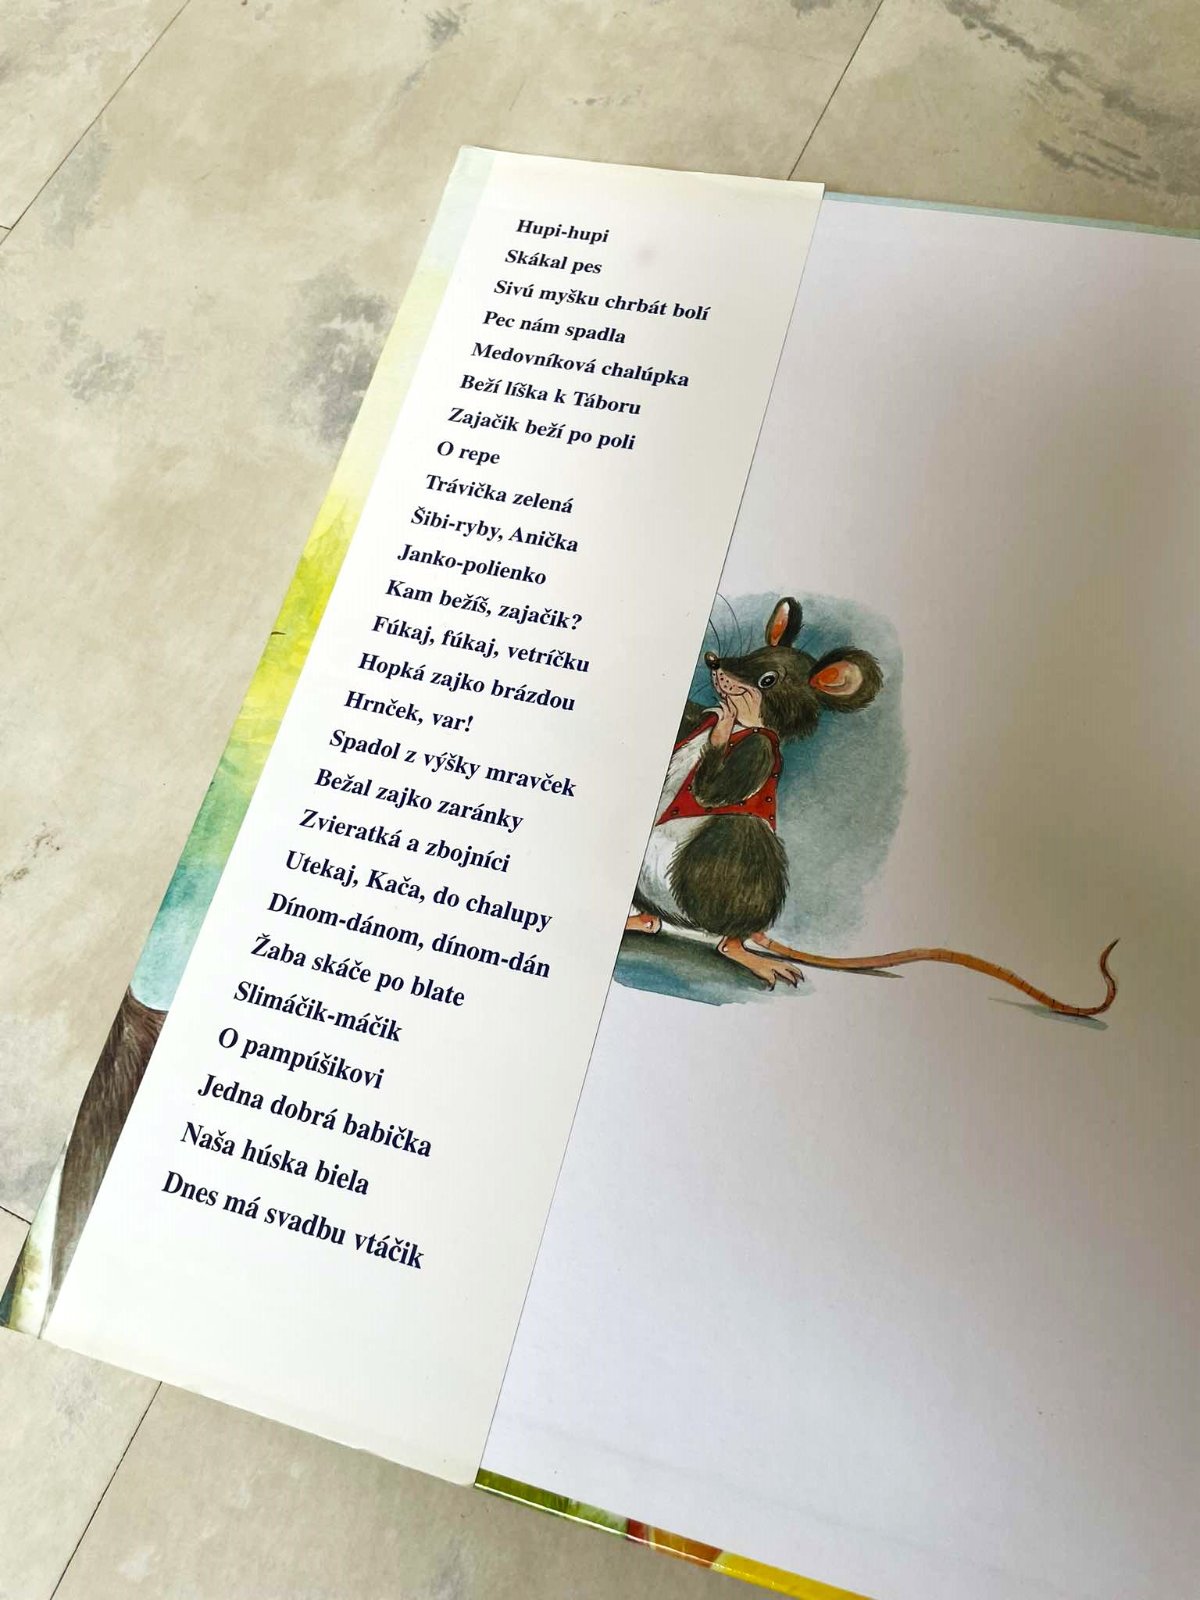 Hupi-hupi
Skákal pes
Sivú myšku chrbát bolí
Pec nám spadla
Medovníková chalúpka
Beží líška k Táboru
Zajačik beží po poli
O repe
Trávička zelená
Šibi-ryby, Anička
Janko-polienko
Kam bežíš, zajačik?
Fúkaj, fúkaj, vetríčku
Hopká zajko brázdou
Hrnček, var!
Spadol z výšky mravček
Bežal zajko zaránky
Zvieratká a zbojníci
Utekaj, Kača, do chalupy
Dínom-dánom, dínom-dán
Žaba skáče po blate
Slimáčik-máčik
O pampúšikovi
Jedna dobrá babička
Naša húska biela
Dnes má svadbu vtáčik